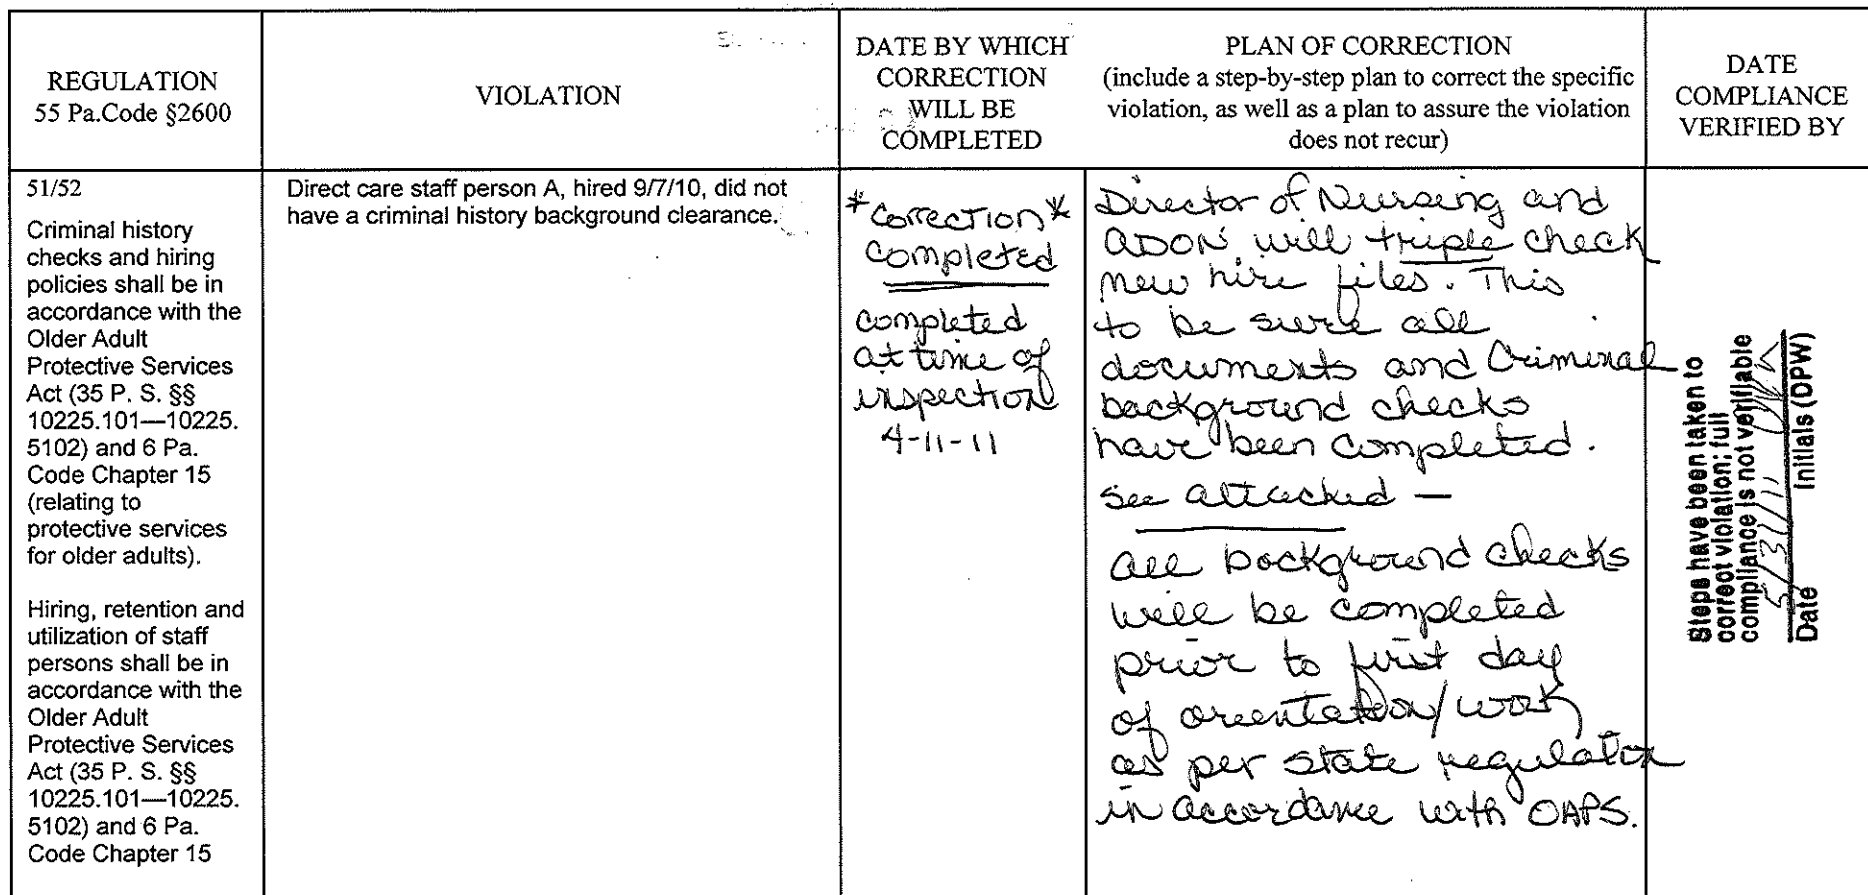 REGULATION
55 Pa.Code §2600
VIOLATION
DATE BY WHICH
CORRECTION
WILL BE
COMPLETED
PLAN OF CORRECTION
(include a step-by-step plan to correct the specific
violation, as well as a plan to assure the violation
does not recur)
DATE
COMPLIANCE
VERIFIED BY
51/52
Criminal history
checks and hiring
policies shall be in
accordance with the
Older Adult
Protective Services
Act (35 P. S. §§
10225.101—10225.
5102) and 6 Pa.
Code Chapter 15
(relating to
protective services
for older adults).
Hiring, retention and
utilization of staff
persons shall be in
accordance with the
Older Adult
Protective Services
Act (35 P. S. §§
10225.101—10225.
5102) and 6 Pa.
Code Chapter 15
Direct care staff person A, hired 9/7/10, did not
have a criminal history background clearance.
*Correction*
Completed
completed
at time of
inspection
4-11-11
Director of Nursing and
ADON will triple check
new hire files. This
to be sure all
documents and Criminal
background checks
have been completed.
See attached —
All background checks
will be completed
prior to first day
of orientation/work
as per state regulation
in accordance with OAPS.
Steps have been taken to
correct violation; full
compliance is not verifiable
5/31/11
Date Initials (DPW)